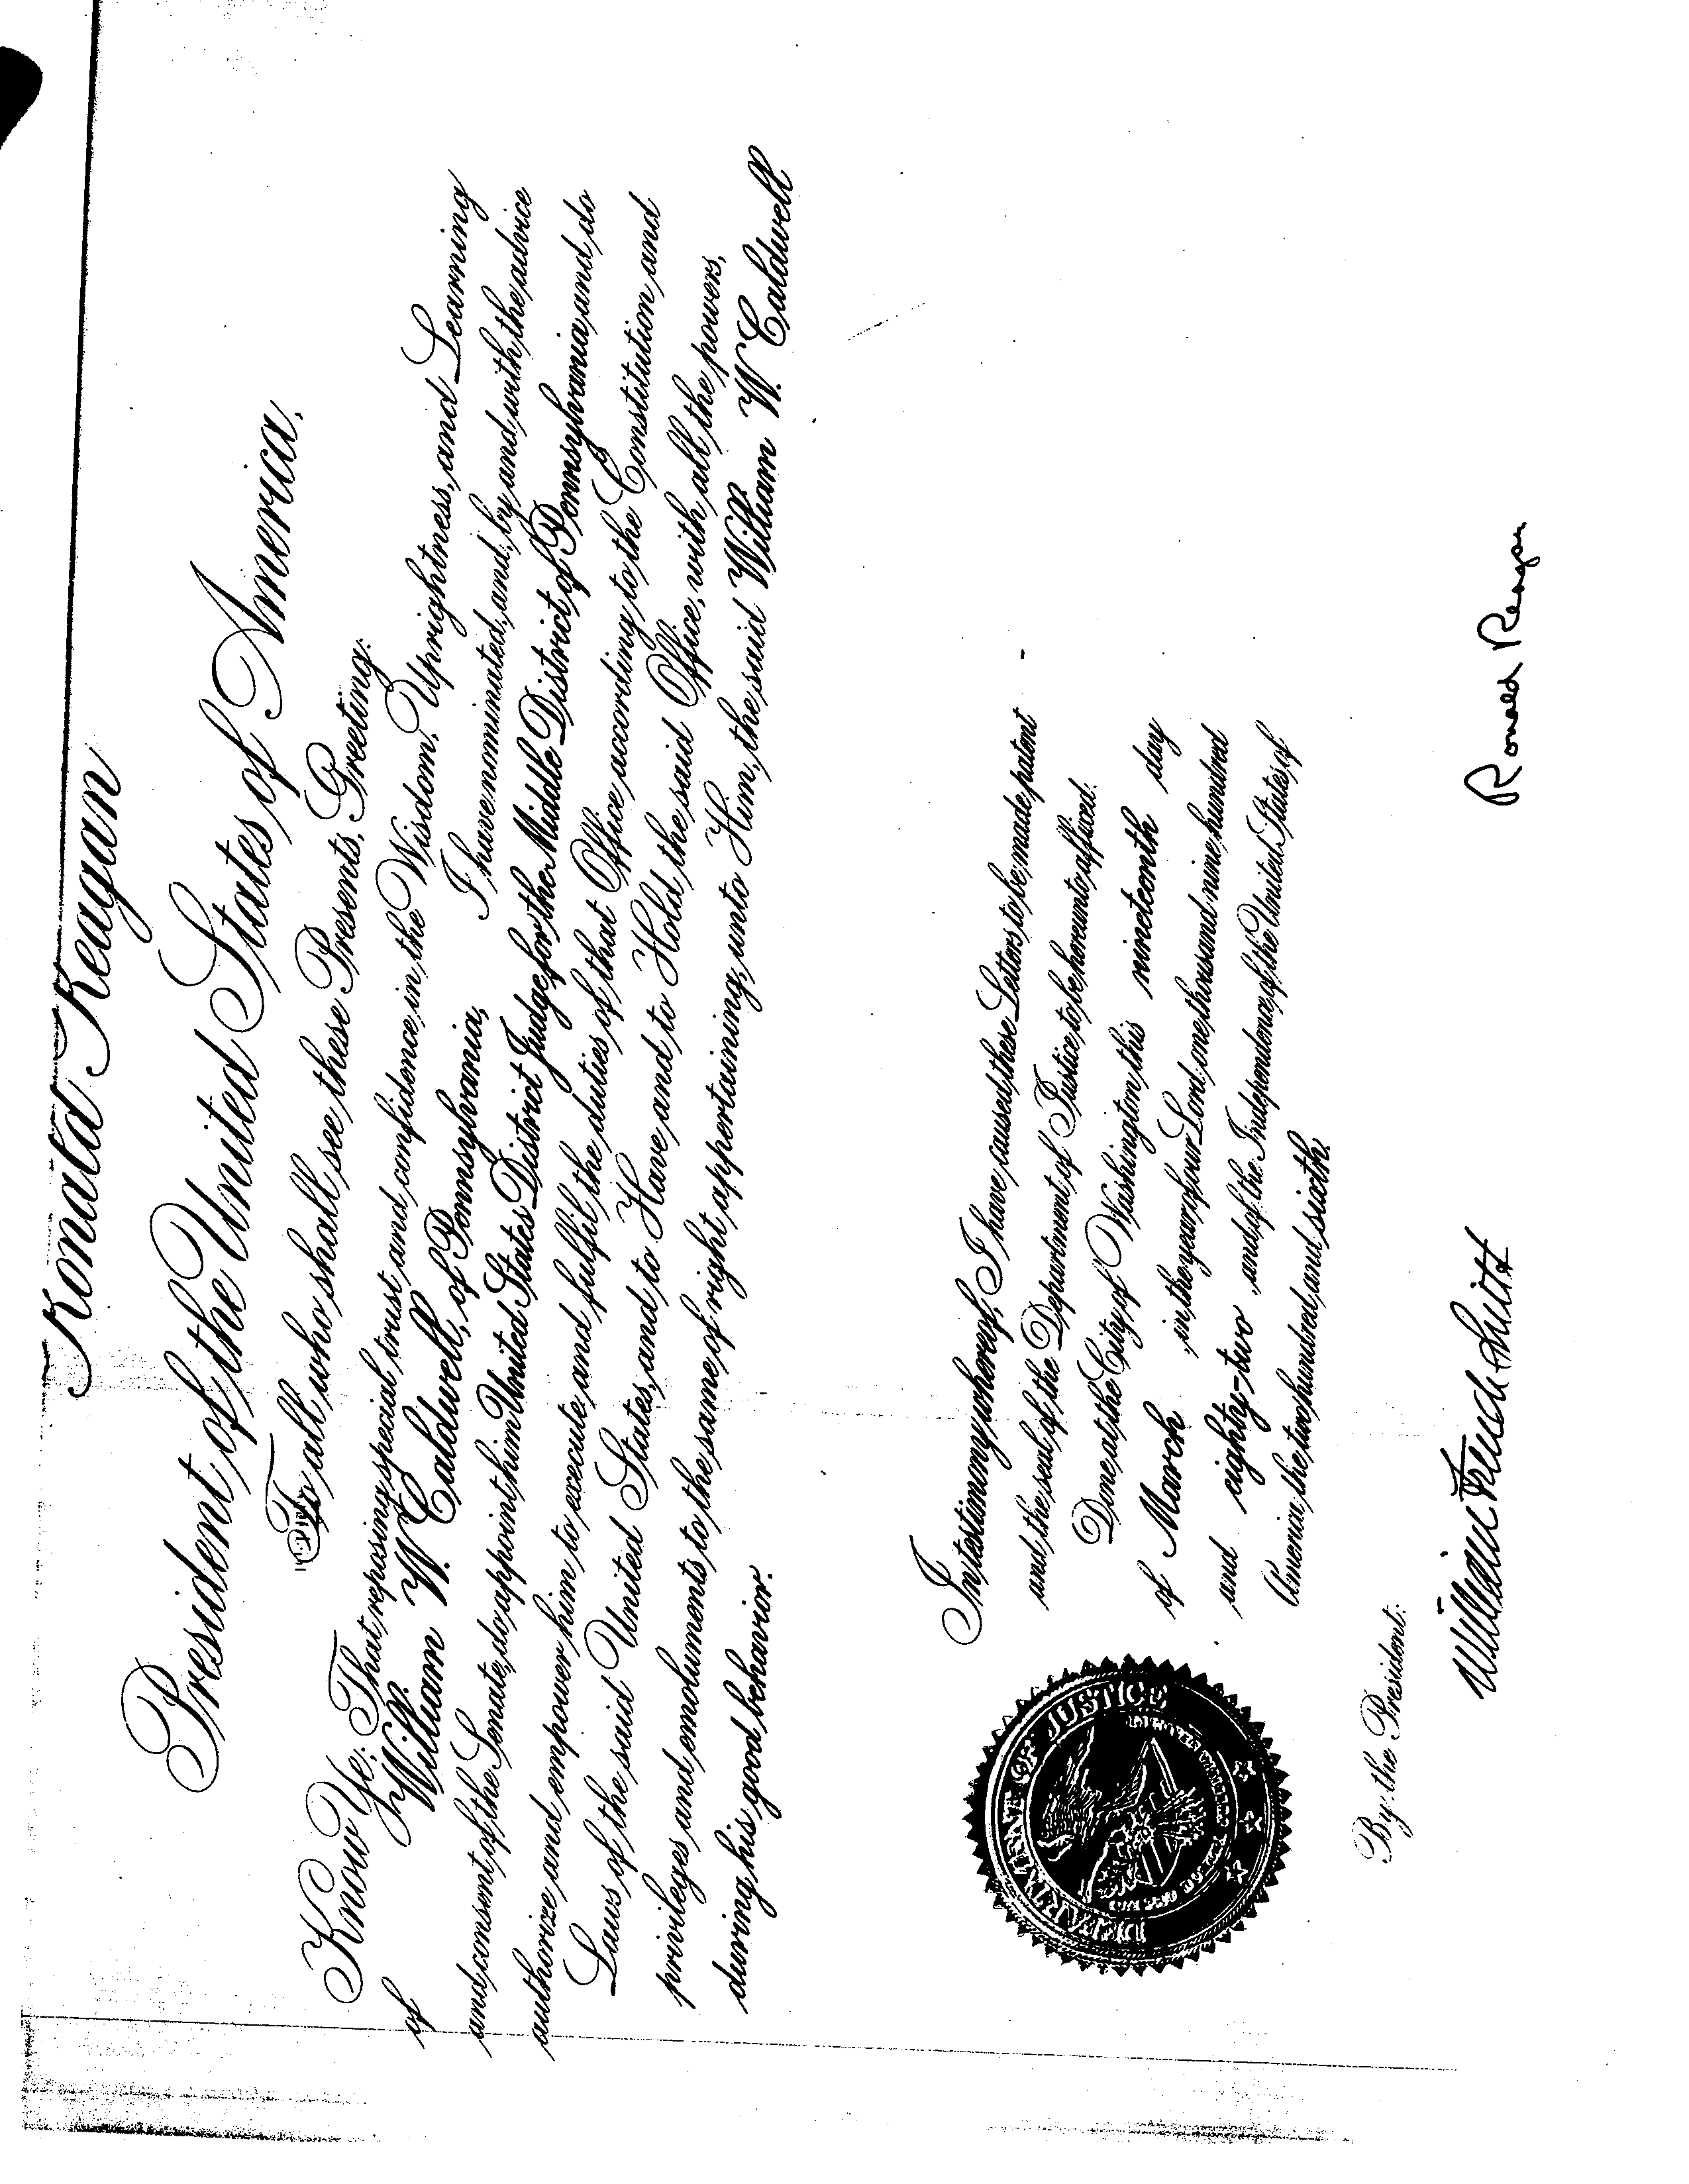 Ronald Reagan
President of the United States of America,
To all who shall see these Presents, Greeting:
Know Ye; That reposing special trust and confidence in the Wisdom, Uprightness, and Learning
of William W. Caldwell, of Pennsylvania, I have nominated, and, by and with the advice
and consent of the Senate, do appoint him United States District Judge for the Middle District of Pennsylvania and do
authorize and empower him to execute and fulfil the duties of that Office according to the Constitution and
Laws of the said United States, and to Have and to Hold the said Office, with all the powers,
privileges and emoluments to the same of right appertaining, unto Him, the said William W. Caldwell
during his good behavior.
In testimony whereof, I have caused these Letters to be made patent
and the seal of the Department of Justice to be hereunto affixed.
Done at the City of Washington this nineteenth day
of March in the year of our Lord one thousand nine hundred
and eighty-two and of the Independence of the United States of
America the two hundred and sixth.
DEPARTMENT OF JUSTICE
By the President:
Ronald Reagan
William French Smith